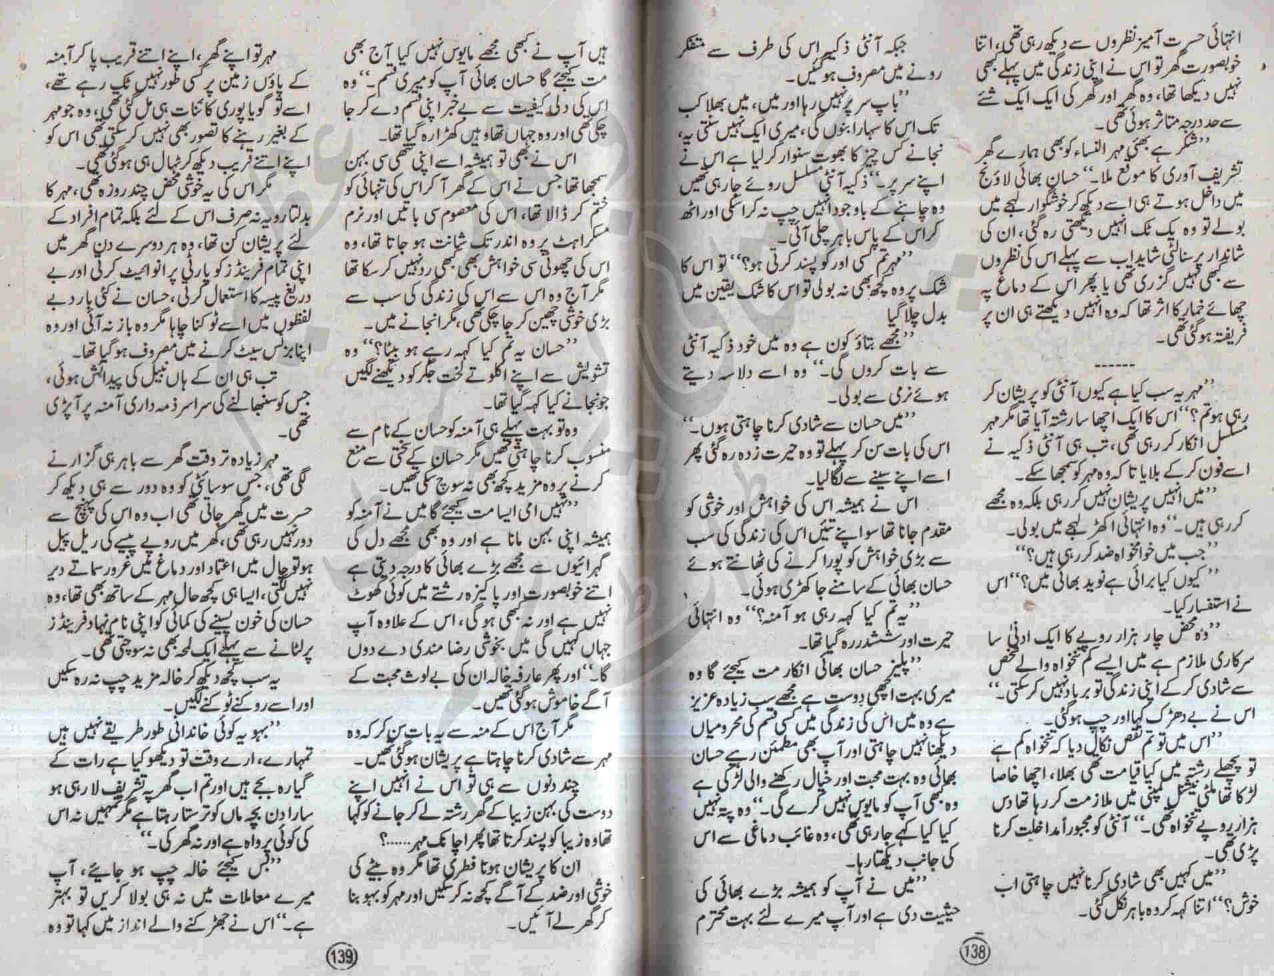 انتہائی حسرت آمیز نظروں سے دیکھ رہی تھی، اتنا
خوبصورت گھر تو اس نے اپنی زندگی میں پہلے کبھی
نہیں دیکھا تھا، وہ گھر اور گھر کی ایک ایک شئے
سے حد درجہ متاثر ہوئی تھی۔
’’شکر ہے بھئی مہر النساء کو بھی ہمارے گھر
تشریف آوری کا موقع ملا۔‘‘ حسان بھائی لاؤنج
میں داخل ہوتے ہی اسے دیکھ کر خوشگوار لہجے میں
بولے تو وہ یک ٹک انہیں دیکھتی رہ گئی، ان کی
شاندار پرسنالٹی شاید اب سے پہلے اس کی نظروں
سے کبھی نہیں گزری تھی یا پھر اس کے دماغ پہ
چھائے خمار کا اثر تھا کہ وہ انہیں دیکھتے ہی ان پر
فریفتہ ہو گئی تھی۔
------
’’مہر یہ سب کیا ہے کیوں آنٹی کو پریشان کر
رہی ہو تم؟‘‘ اس کا ایک اچھا سا رشتہ آیا تھا مگر مہر
مسلسل انکار کر رہی تھی، تب ہی آنٹی ذکیہ نے
اسے فون کر کے بلایا تا کہ وہ مہر کو سمجھا سکے۔
’’میں انہیں پریشان نہیں کر رہی بلکہ وہ مجھے
کر رہی ہیں۔‘‘ وہ انتہائی اکھڑ لہجے میں بولی۔
’’جب میں خوامخواہ ضد کر رہی ہیں؟‘‘
’’کیوں کیا برائی ہے نوید بھائی میں؟‘‘ اس
نے استفسار کیا۔
’’وہ محض چار ہزار روپے کا ایک ادنیٰ سا
سرکاری ملازم ہے میں ایسے کم تنخواہ والے شخص
سے شادی کر کے اپنی زندگی تو برباد نہیں کر سکتی۔‘‘
اس نے بے دھڑک کہا اور چپ ہو گئی۔
’’اس میں تو تم نقص نکال دیا کہ تنخواہ کم ہے
تو پچھلے رشتہ میں کیا قیامت تھی بھلا، اچھا خاصا
لڑکا تھا ملٹی نیشنل کمپنی میں ملازمت کر رہا تھا دس
ہزار روپے تنخواہ تھی۔‘‘ آنٹی کو مجبوراً مداخلت کرنا
پڑی تھی۔
’’میں کہیں بھی شادی کرنا نہیں چاہتی اب
خوش؟‘‘ اتنا کہہ کر وہ باہر نکل گئی۔
138
جبکہ آنٹی ذکیہ اس کی طرف سے متفکر
رونے میں مصروف ہو گئیں۔
’’باپ سر پر نہیں رہا اور میں، میں بھلا کب
تک اس کا سہارا بنوں گی، میری ایک نہیں سنتی یہ،
نجانے کس چیز کا بھوت سنوار کر لیا ہے اس نے
اپنے سر پر۔‘‘ ذکیہ آنٹی مسلسل روئے جا رہی تھیں
وہ چاہنے کے باوجود انہیں چپ نہ کرا سکی اور اٹھ
کر اس کے پاس باہر چلی آئی۔
’’مہر تم کسی اور کو پسند کرتی ہو؟‘‘ تو اس کا
شک پر وہ کچھ بھی نہ بولی تو اس کا شک یقین میں
بدل چلا گیا
’’مجھے بتاؤ کون ہے وہ میں خود ذکیہ آنٹی
سے بات کروں گی۔‘‘ وہ اسے دلاسہ دیتے
ہوئے نرمی سے بولی۔
’’میں حسان سے شادی کرنا چاہتی ہوں۔‘‘
اس کی بات سن کر پہلے تو وہ حیرت زدہ رہ گئی پھر
اسے اپنے سینے سے لگا لیا۔
اس نے ہمیشہ اس کی خواہش اور خوشی کو
مقدم جانا تھا سو اپنے تئیں اس کی زندگی کی سب
سے بڑی خواہش کو پورا کرنے کی ٹھانتے ہوئے
حسان بھائی کے سامنے جا کھڑی ہوئی۔
’’یہ تم کیا کہہ رہی ہو آمنہ؟‘‘ وہ انتہائی
حیرت اور ششدر رہ گیا تھا۔
’’پلیز حسان بھائی انکار مت کیجئے گا وہ
میری بہت اچھی دوست ہے مجھے سب زیادہ عزیز
ہے وہ میں اس کی زندگی میں کسی قسم کی محرومیاں
دیکھنا نہیں چاہتی اور آپ بھی مطمئن رہے حسان
بھائی وہ بہت محبت اور خیال رکھنے والی لڑکی ہے
وہ بھی آپ کو مایوس نہیں کرے گی۔‘‘ وہ پتہ نہیں
کیا کیا کہے جا رہی تھی، وہ غائب دماغی سے اس
کی جانب دیکھتا رہا۔
’’میں نے آپ کو ہمیشہ بڑے بھائی کی
حیثیت دی ہے اور آپ میرے لئے بہت محترم
ہیں آپ نے کبھی مجھے مایوس نہیں کیا آج بھی
مت کیجئے گا حسان بھائی آپ کو میری قسم۔‘‘ وہ
اس کی دلی کیفیت سے بے خبر اپنی قسم دے کر جا
چکی تھی اور وہ جہاں تھا وہیں کھڑا رہ گیا تھا۔
اس نے بھی تو ہمیشہ اسے اپنی ننھی سی بہن
سمجھا تھا جس نے اس کے گھر آ کر اس کی تنہائی کو
ختم کر ڈالا تھا، اس کی معصوم سی باتیں اور نرم
مسکراہٹ پر وہ اندر تک شانت ہو جاتا تھا، وہ
اس کی چھوٹی سی خواہش بھی کبھی رد نہیں کر سکا تھا
مگر آج وہ اس سے اس کی زندگی کی سب سے
بڑی خوشی چھین کر جا چکی تھی، مگر انجانے میں۔
’’حسان یہ تم کیا کہہ رہے ہو بیٹا؟‘‘ وہ
تشویش سے اپنے اکلوتے لخت جگر کو دیکھنے لگیں
جو نجانے کیا کہہ گیا تھا۔
وہ تو بہت پہلے ہی آمنہ کو حسان کے نام سے
منسوب کرنا چاہتی تھیں مگر حسان کے سختی سے منع
کرنے پر وہ مزید کچھ بھی نہ سوچ سکی تھیں۔
’’نہیں امی ایسا مت کیجئے گا میں نے آمنہ کو
ہمیشہ اپنی بہن مانا ہے اور وہ بھی مجھے دل کی
گہرائیوں سے مجھے بڑے بھائی کا درجہ دیتی ہے
اتنے خوبصورت اور پاکیزہ رشتے میں کوئی کھوٹ
نہیں ہے اور نہ بھی ہو گی، اس کے علاوہ آپ
جہاں کہیں گی میں بخوشی رضا مندی دے دوں
گا۔‘‘ اور پھر عارفہ خالہ ان کی بے لوث محبت کے
آگے خاموش ہو گئی تھیں۔
مگر آج اس کے منہ سے یہ بات سن کر کہ وہ
مہر سے شادی کرنا چاہتا ہے پریشان ہو گئی تھیں۔
چند دنوں سے ہی تو اس نے انہیں اپنے
دوست کی بہن زیبا کے گھر رشتہ لے کر جانے کو کہا
تھا وہ زیبا کو پسند کرتا تھا پھر اچانک مہر......؟
ان کا پریشان ہونا فطری تھا مگر وہ بیٹے کی
خوشی اور ضد کے آگے کچھ نہ کر سکیں اور مہر کو بہو بنا
کر گھر لے آئیں۔
مہر تو اپنے گھر، اپنے اتنے قریب پا کر آمنہ
کے پاؤں زمین پر کسی طور نہیں ٹک رہے تھے،
اسے تو گویا پوری کائنات ہی مل گئی تھی، وہ جو مہر
کے بغیر رہنے کا تصور بھی نہیں کر سکتی تھی اس کو
اپنے اتنے قریب دیکھ کر نہال ہی ہو گئی تھی۔
مگر اس کی یہ خوشی محض چند روزہ تھی، مہر کا
بدلتا رویہ نہ صرف اس کے لئے بلکہ تمام افراد کے
لئے پریشان کن تھا، وہ ہر دوسرے دن گھر میں
اپنی تمام فرینڈز کو پارٹی پر انوائیٹ کرتی اور بے
دریغ پیسہ کا استعمال کرتی، حسان نے کئی بار دبے
لفظوں میں اسے ٹوکنا چاہا مگر وہ باز نہ آئی اور وہ
اپنا بزنس سیٹ کرنے میں مصروف ہو گیا تھا۔
تب ہی ان کے ہاں نبیل کی پیدائش ہوئی،
جس کو سنبھالنے کی سراسر ذمہ داری آمنہ پر آ پڑی
تھی۔
مہر زیادہ تر وقت گھر سے باہر ہی گزارنے
لگی تھی، جس سوسائٹی کو وہ دور سے ہی دیکھ کر
حسرت میں گھر جاتی تھی اب وہ اس کی پہنچ سے
دور نہیں رہی تھی، گھر میں روپے پیسے کی ریل پیل
ہو تو چال میں اعتماد اور دماغ میں غرور سماتے دیر
نہیں لگتی، ایسا ہی کچھ حال مہر کے ساتھ بھی تھا، وہ
حسان کی خون پسینے کی کمائی کو اپنی نام نہاد فرینڈز
پر لٹانے سے پہلے ایک لمحہ بھی نہ سوچتی تھی۔
یہ سب کچھ دیکھ کر خالہ مزید چپ نہ رہ سکیں
اور اسے روکنے ٹوکنے لگیں۔
’’بہو یہ کوئی خاندانی طور طریقے نہیں ہیں
تمہارے، ارے وقت تو دیکھو کیا ہے رات کے
گیارہ بجے ہیں اور تم اب گھر پہ تشریف لا رہی ہو
سارا دن بچہ ماں کو ترستا رہتا ہے مگر تمہیں نہ اس
کی کوئی پرواہ ہے اور نہ گھر کی۔‘‘
’’بس کیجئے خالہ چپ ہو جائیے، آپ
میرے معاملات میں نہ ہی بولا کریں تو بہتر
ہے۔‘‘ اس نے جھڑکنے والے انداز میں کہا تو وہ
139